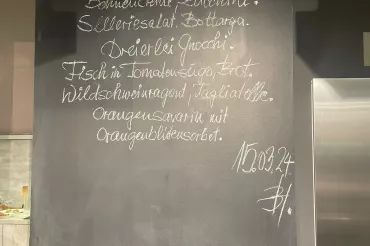 Bohnencreme,
Selleriesalat. Bottarga.
Dreierlei Gnocchi.
Fisch in Tomatensugo, Brot.
Wildschweinragout, Tagliatelle.
Orangensavarin mit
Orangenblütensorbet.
15.03.24